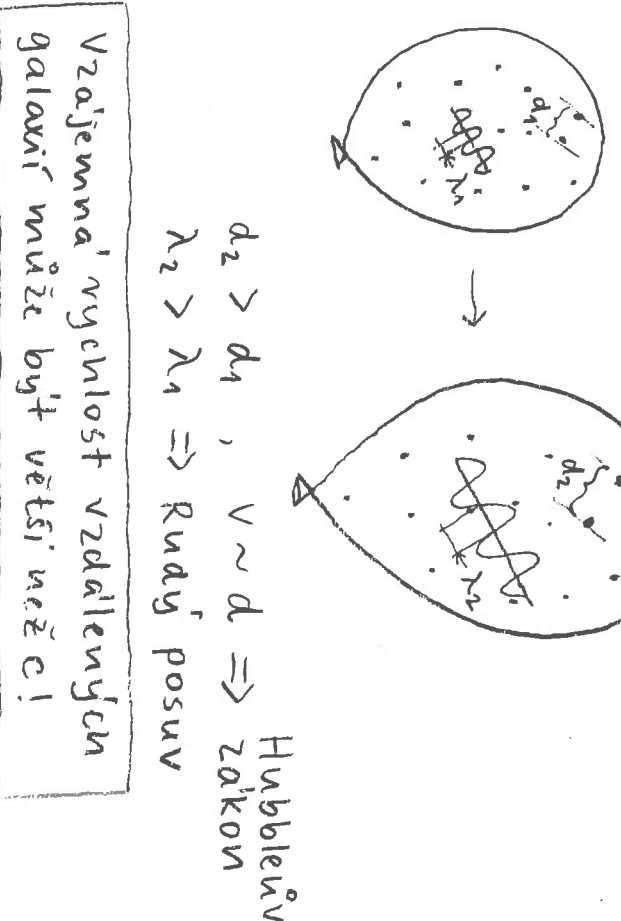 d₁
λ₁
d₂
λ₂
d₂ > d₁ , v ~ d ⇒ Hubbleův
zákon
λ₂ > λ₁ ⇒ Rudý posuv
Vzájemná rychlost vzdálených
galaxií může být větší než c!